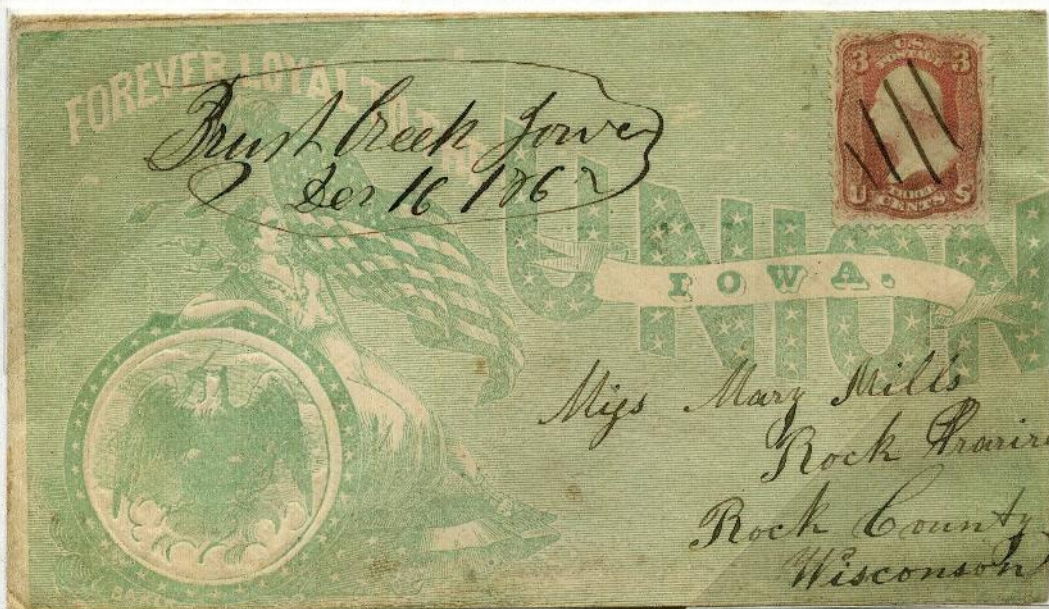 FOREVER LOYAL TO THE
UNION
IOWA.
Creek Iowa
Dec 16 1862
U.S. POSTAGE
3 3
THREE
U CENTS S
Miss Mary Mills
Rock Prairie
Rock County
Wisconson